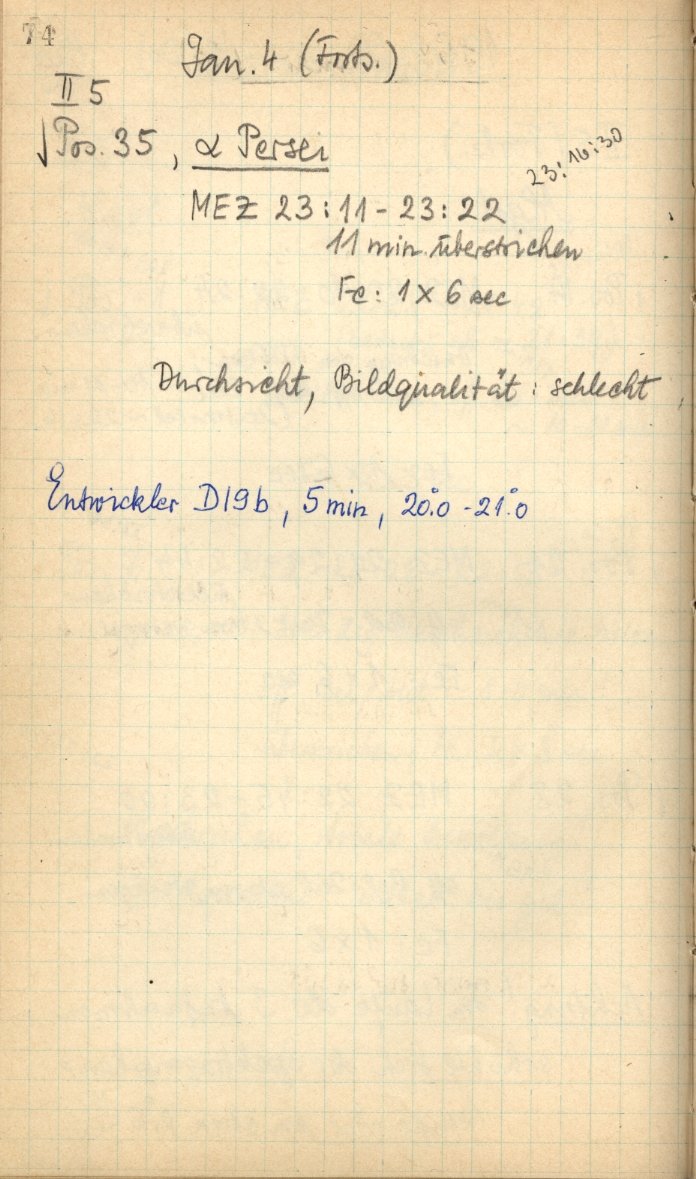 74
Jan. 4 (Forts.)
II 5
√Pos. 35, α Persei
23:16:30
MEZ 23:11 - 23:22
11 min. überstrichen
Fe: 1 × 6 sec
Durchsicht, Bildqualität: schlecht
Entwickler D19b, 5 min, 20°.0 - 21°.0